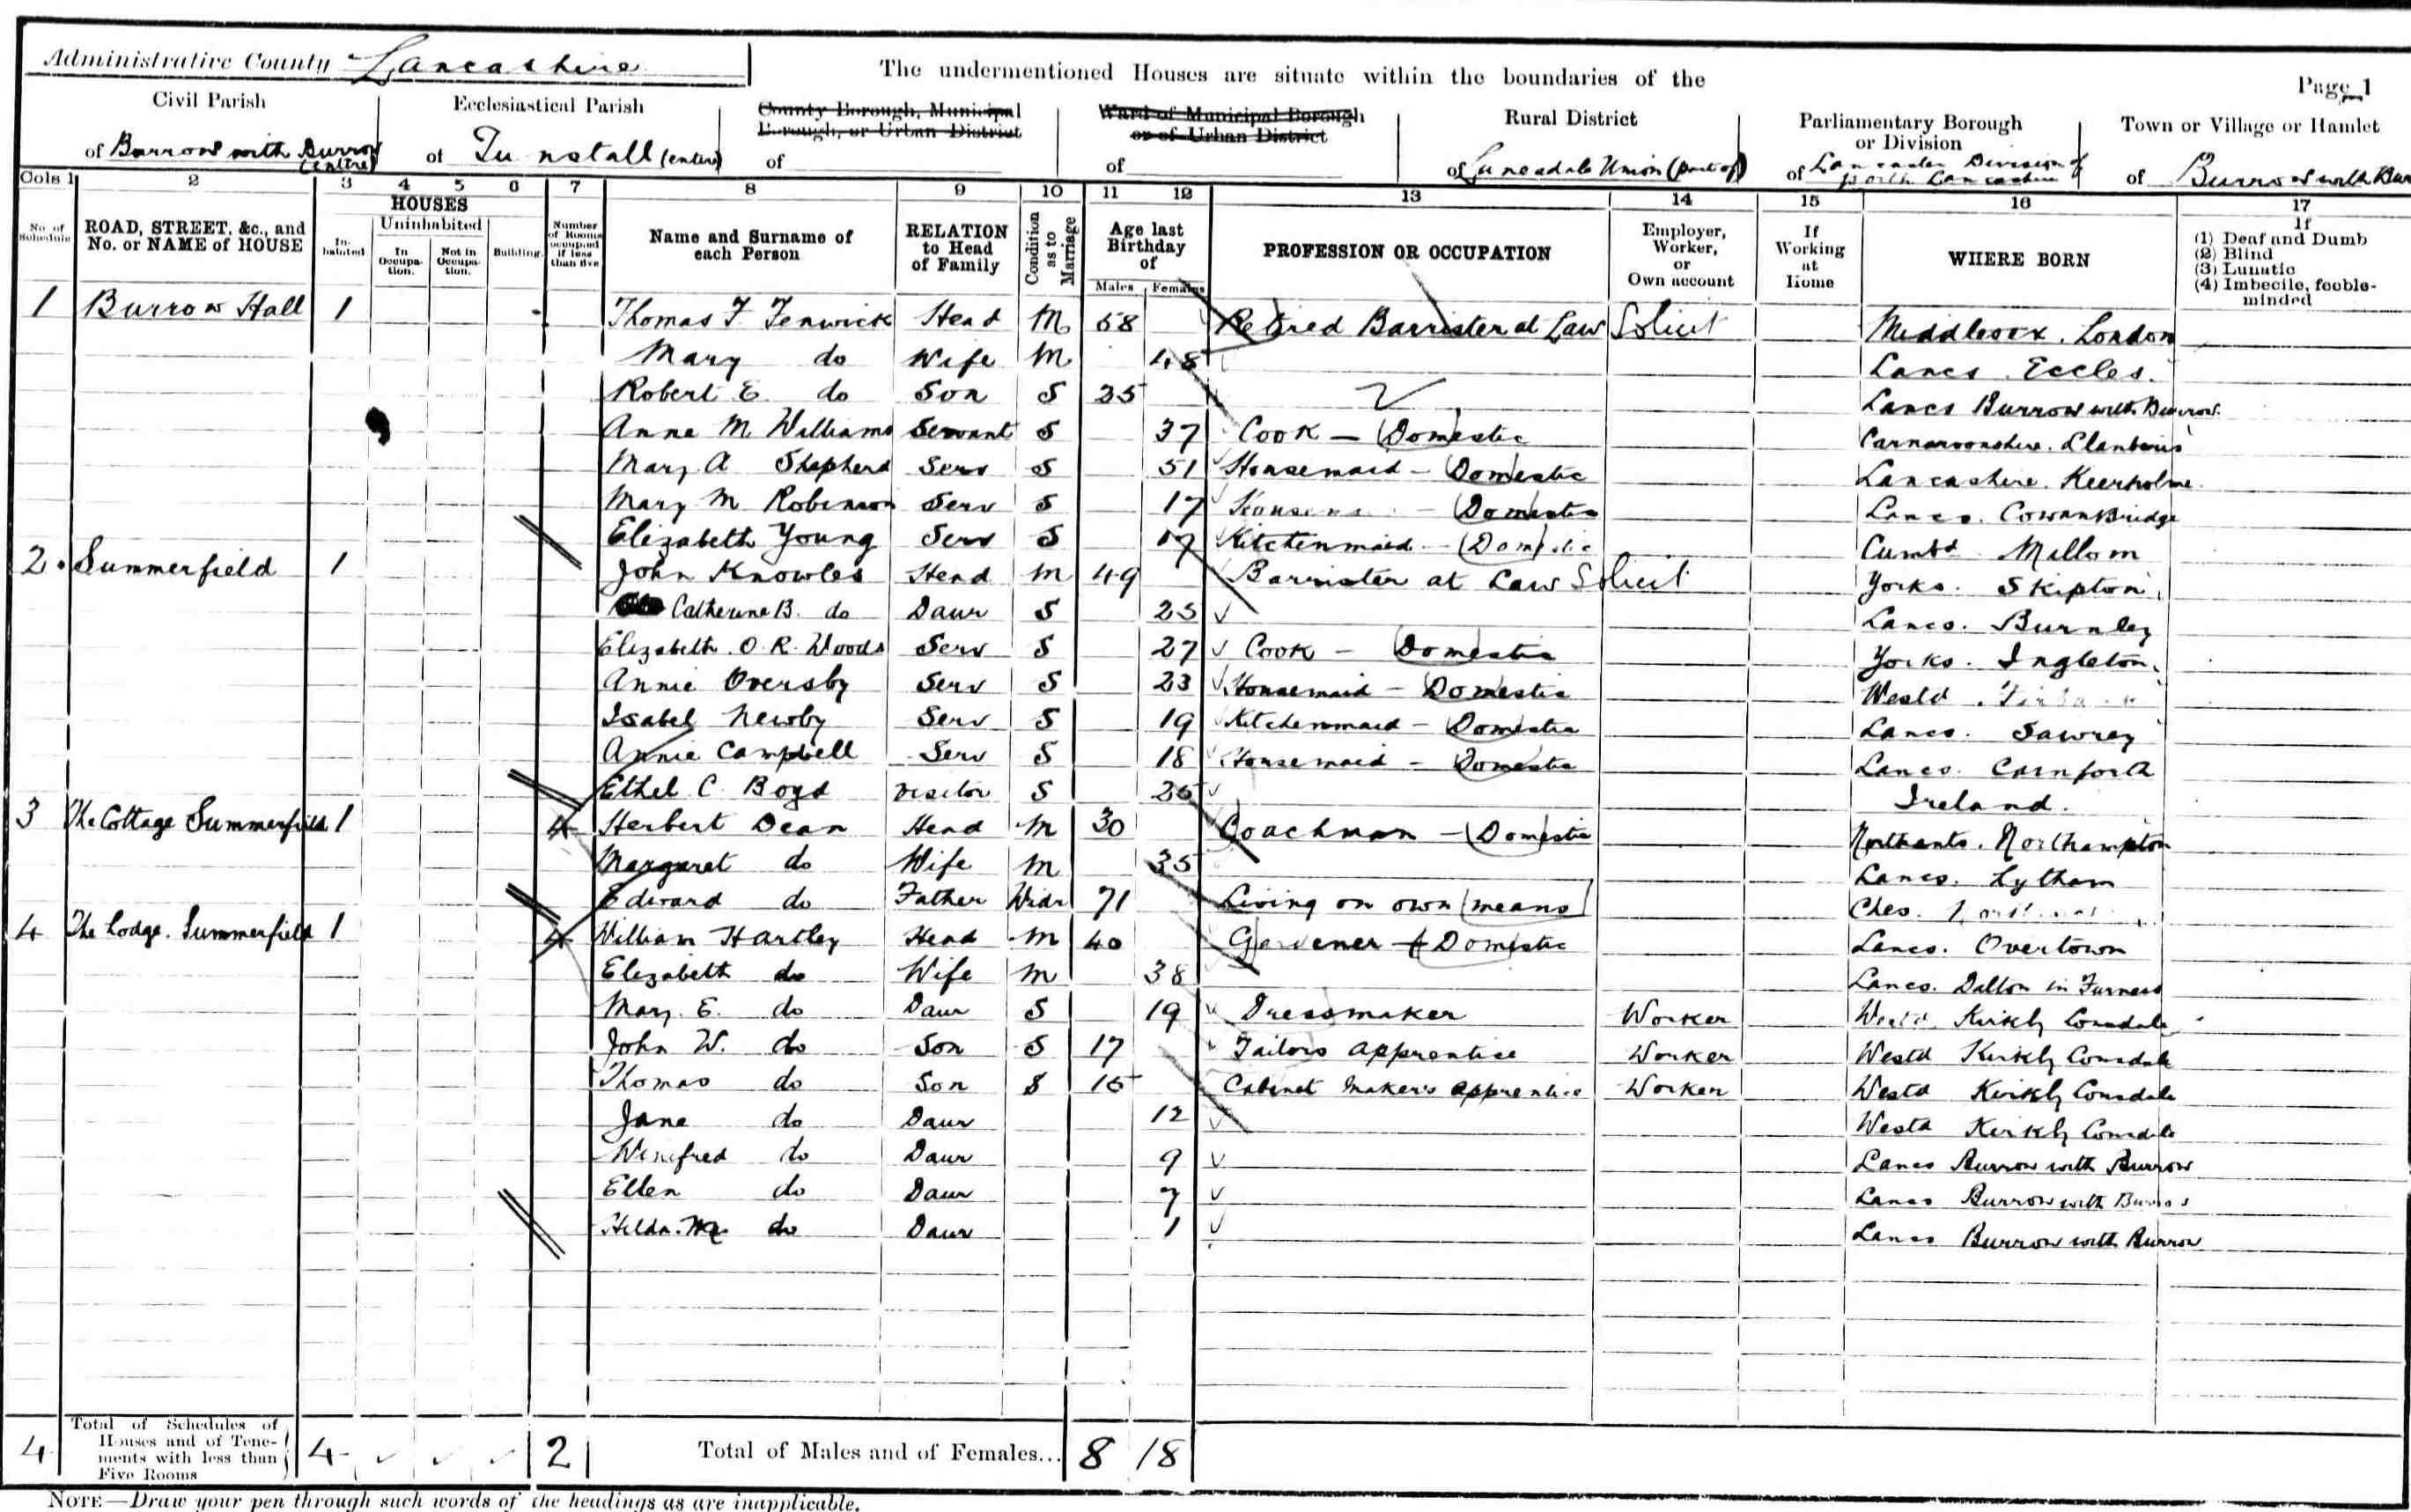 Administrative County Lancashire
The undermentioned Houses are situate within the boundaries of the
Page 1
Civil Parish
of Burrow with Burrow (entire)
Ecclesiastical Parish
of Tunstall (entire)
County Borough, Municipal Borough, or Urban District
of
Ward of Municipal Borough or of Urban District
of
Rural District
of Lunesdale Union (part of)
Parliamentary Borough or Division
of Lancaster Division of North Lancashire
Town or Village or Hamlet
of Burrow with Bur
Cols 1 2 3 4 5 6 7 8 9 10 11 12 13 14 15 16 17
No. of Schedule
ROAD, STREET, &c., and No. or NAME of HOUSE
HOUSES
Inhabited
Uninhabited
In Occupation.
Not in Occupation.
Building.
Number of Rooms occupied if less than five
Name and Surname of each Person
RELATION to Head of Family
Condition as to Marriage
Age last Birthday of
Males Females
PROFESSION OR OCCUPATION
Employer, Worker, or Own account
If Working at Home
WHERE BORN
If
(1) Deaf and Dumb
(2) Blind
(3) Lunatic
(4) Imbecile, feeble-minded
1 Burrow Hall 1 Thomas F. Fenwick Head M 58 Retired Barrister at Law Solicit Middlesex. London
Mary do Wife M 48 Lancs Eccles.
Robert E do Son S 25 Lancs Burrow with Burrow
Anne M Williams Servant S 37 Cook - (Domestic Carnarvonshire. Llanberis
Mary A Shepherd Serv S 51 Housemaid - Domestic Lancashire. Keerholme
Mary M Robinson Serv S 17 - Domestic Lancs. Cowan Bridge
Elizabeth Young Serv S 17 Kitchenmaid - (Domestic Cumbd Millom
2. Summerfield 1 John Knowles Head M 49 Barrister at Law Solicit Yorks. Skipton
Catherine B. do Daur S 25 Lancs. Burnley
Elizabeth. O. R. Woods Serv S 27 Cook - Domestic Yorks. Ingleton
Annie Oversby Serv S 23 Housemaid - Domestic Westd
Isabel Newby Serv S 19 Kitchenmaid - Domestic Lancs. Sawrey
Annie Campbell Serv S 18 Housemaid - Domestic Lancs. Carnforth
Ethel C. Boyd Visitor S 25 Ireland.
3 The Cottage Summerfield 1 4 Herbert Dean Head M 30 Coachman - (Domestic Northants. Northampton
Margaret do Wife M 35 Lancs. Lytham
Edward do Father Widr 71 Living on own means Ches.
4 The Lodge. Summerfield 1 4 William Hartley Head M 40 Gardener - Domestic Lancs. Overtown
Elizabeth do Wife M 38 Lancs. Dalton in Furness
Mary. E. do Daur S 19 Dressmaker Worker Westd. Kirkby Lonsdale
John W. do Son S 17 Tailors Apprentice Worker Westd Kirkby Lonsdale
Thomas do Son S 15 Cabinet Makers Apprentice Worker Westd Kirkby Lonsdale
Jane do Daur 12 Westd Kirkby Lonsdale
Winifred do Daur 9 Lancs Burrow with Burrow
Ellen do Daur 7 Lancs Burrow with Burrow
Hilda. M do Daur 1 Lancs Burrow with Burrow
4 Total of Schedules of Houses and of Tenements with less than Five Rooms 4 2 Total of Males and of Females... 8 18
NOTE—Draw your pen through such words of the headings as are inapplicable.